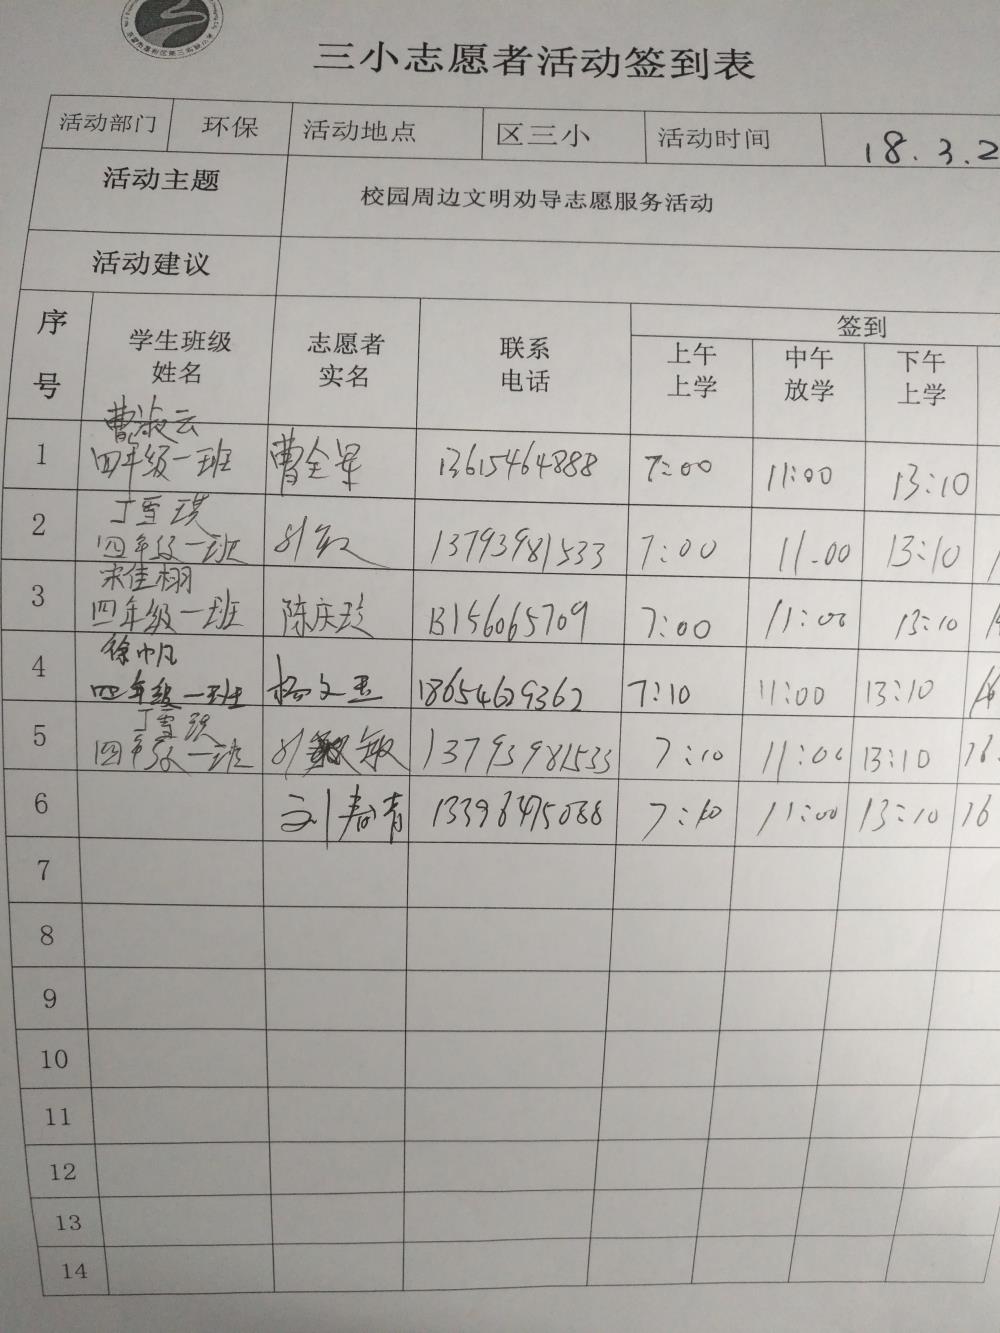 三小志愿者活动签到表
活动部门 环保 活动地点 区三小 活动时间 18.3.2
活动主题 校园周边文明劝导志愿服务活动
活动建议
序号 学生班级姓名 志愿者实名 联系电话 签到
上午上学 中午放学 下午上学
曹淑云
1 四年级一班 曹全军 13615464888 7:00 11:00 13:10
丁雪琪
2 四年级一班 13793981533 7:00 11:00 13:10
宋佳栩
3 四年级一班 陈庆玲 13156065709 7:00 11:00 13:10
徐帆
4 四年级一班 杨文玉 18654629362 7:10 11:00 13:10
丁雪琪
5 四年级一班 敏 13793981533 7:10 11:00 13:10 16
6 刘春青 13396475088 7:10 11:00 13:10 16
7
8
9
10
11
12
13
14